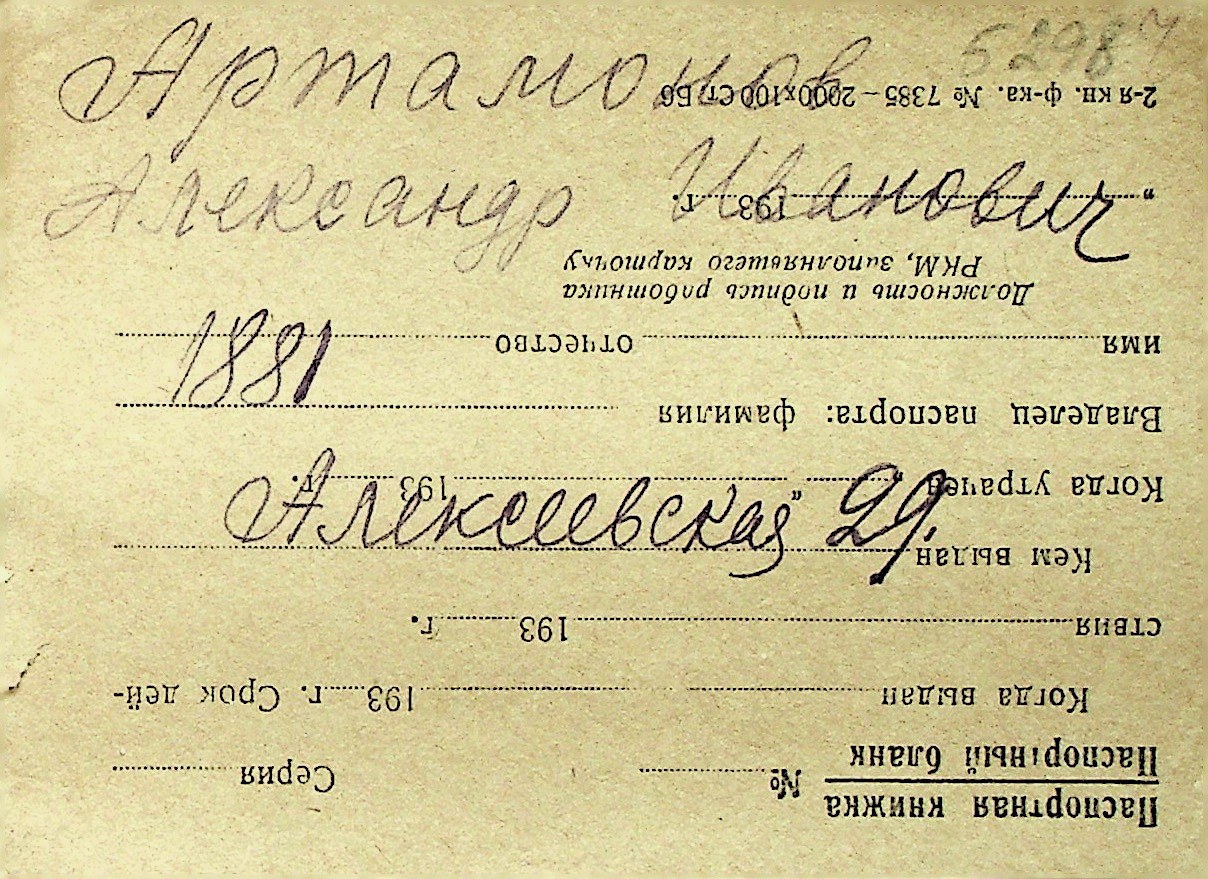 52987
Артамонов
Александр Иванович
1881
Алексеевская 29.
Паспортная книжка
Паспортный бланк
№ Серия
Когда выдан 193 г. Срок дей-
ствия 193 г.
Кем выдан
Когда утрачен „ " 193 г.
Владелец паспорта: фамилия
имя отчество
Должность и подпись работника
РКМ, заполнявшего карточку
" 193 г.
2-я кн. ф-ка. № 7385 – 2000х100 СТ Б6